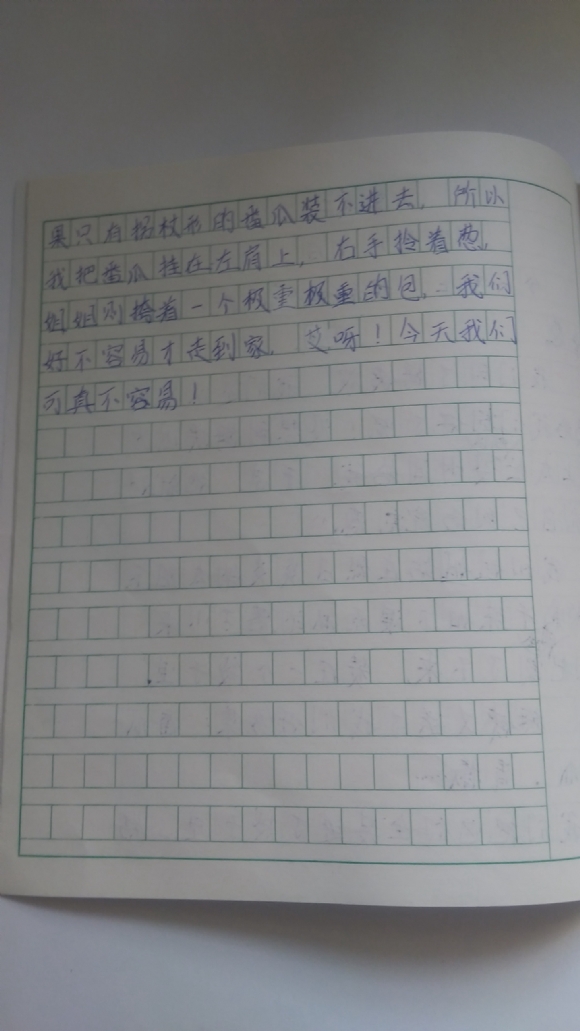 果只有拐杖形的番瓜装不进去，所以
我把番瓜挂在左肩上，右手拎着葱，
姐姐则挎着一个极重极重的包，我们
好不容易才走到家，艾呀！今天我们
可真不容易！